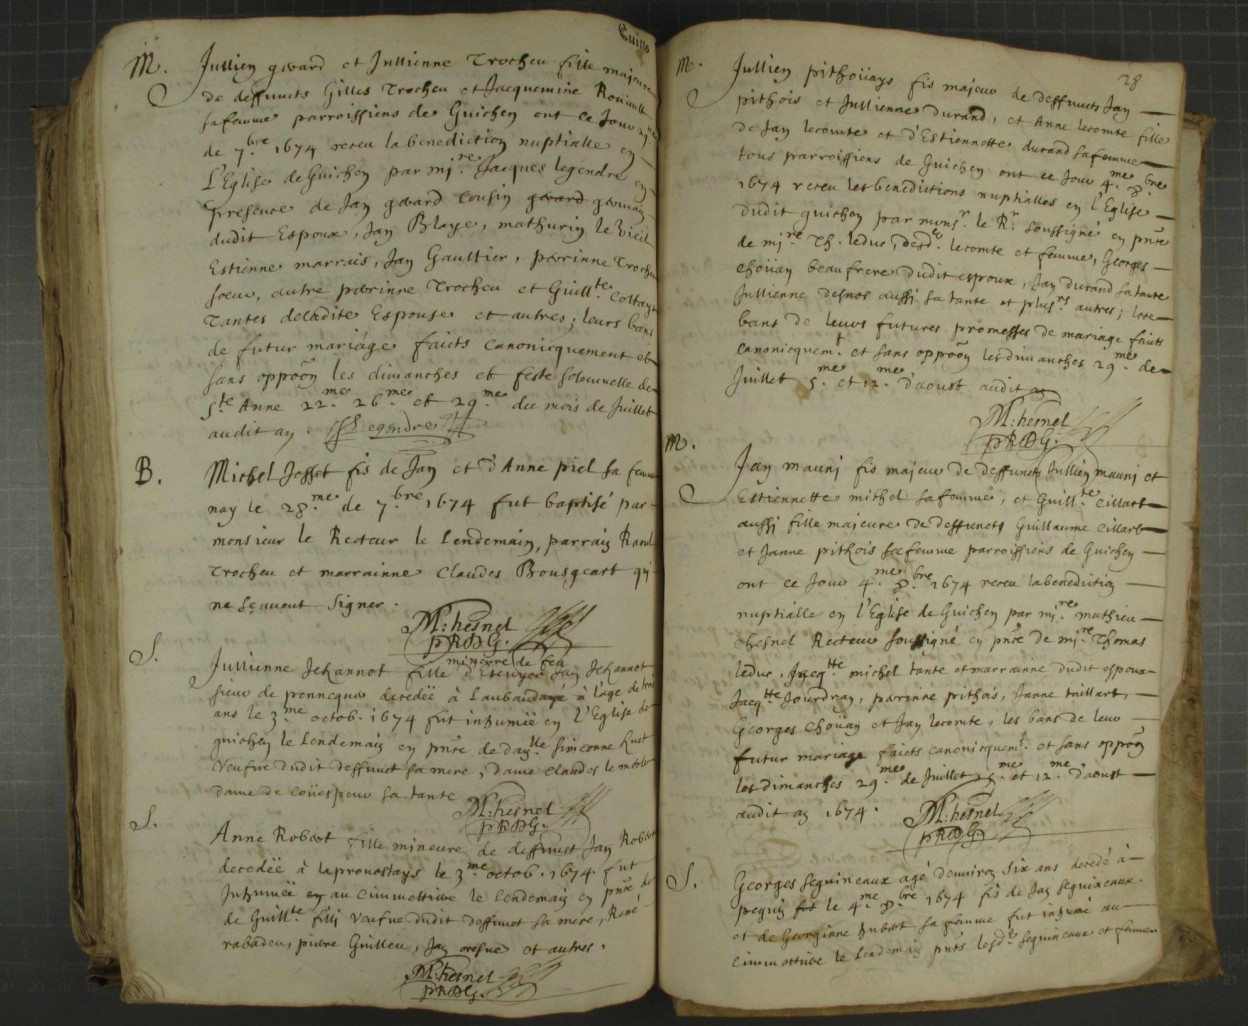 M. Jullien gerard et Jullienne Trocheu fille majeure
de deffuncts Gilles Trocheu et Jacquemine
sa femme parroissiens de Guichen ont ce Jour
de 7.bre 1674 receu la benediction nuptialle en
L'Eglise de Guichen par mi.re Jacques legendre en
presence de Jan gerard cousin gerard germain
dudit Espoux, Jan Blaye, mathurin le vieil
Estienne marrais, Jan Gaultier, perrinne Trocheu
soeur, autre perrinne Trocheu et Guill.te
Tantes de ladite Espouse et autres; leurs bans
de futur mariage faicts canonicquement et
sans oppoõn les dimanches et feste solemnelle de
S.te Anne 22.me 26.me et 29.me du mois de Juillet
audit an. Legendre
B. Michel Josset fis de Jan et d'Anne piel sa femme
nay le 28.me de 7.bre 1674 fut baptisé par
monsieur le Recteur le Lendemain, parrain Raoul
Trocheu et marrainne Claudes Bousgeart qui
ne sçavent signer.
M: hesnel
pRDG.
S. mineure de feu
Jullienne Jehannot fille d'Escuyer Jan Jehannot
sieur de pennequer decedéé à Laubaudaye à l'age de trois
ans le 3.me octob. 1674 fut inhuméé en L'Eglise de
guichen le Lendemain en pñce de Dam.lle Simeonne huet
Veufve dudit deffunct sa mere, Dame Claudes le
dame de sa tante
M: hesnel
pRDG.
S. Anne Robert fille mineure de deffunct Jan Robert
decedéé à laprovostays le 3.me octob. 1674 fut
Inhuméé en au Cimmettiere le Lendemain en pñce de
de Guill.te filly Veufve dudit deffunct sa mere, René
rabaden, pierre Guilleu, Jan et autres.
M: hesnel
pRDG.
28
M. Jullien pithoüays fis majeur de deffuncts Jan
pithois et Jullienne durand, et Anne lecomte fille
de Jan lecomte et d'Estiennette durand sa femme
tous parroissiens de Guichen ont ce Jour 4.me 8.bre
1674 receu les benedictions nuptialles en l'Eglise
dudit guichen par mons.r le R.r soussigné en pñce
de mi.re Th. leduc, lecomte et femme, Georges
choüan beaufrere dudit espoux, Jan durand sa tante
Jullienne desnos aussi sa tante et plus.rs autres; les
bans de leurs futures promesses de mariage faits
canonicquem.t et sans oppoõn les dimanches 29.me de
Juillet 5.me et 12.me d'aoust audit an
M: hesnel
pRDG.
M. Jan mauni fis majeur de deffuncts Jullien mauni et
Estiennette michel sa femme, et Guill.te Cillart
aussi fille majeure de deffuncts Guillaume Cillart
et Janne pithois sa femme parroissiens de Guichen
ont ce Jour 4.me 8.bre 1674 receu la benediction
nuptialle en l'Eglise de Guichen par mi.re mathieu
chesnel Recteur soussigné en pñce de mi.re Thomas
leduc, Jacq.tte michel tante et marrainne dudit espoux
Jacq.tte Jourdran, perrinne pithois, Janne taillart,
Georges Choüan et Jan lecomte, les bans de leur
futur mariage faicts canonicquem.t et sans oppoõn
les dimanches 29.me de Juillet 5.me et 12.me d'aoust
audit an 1674.
M: hesnel
pRDG
S. Georges seguineaux agé d'environ six ans decedé à
le 4.me 8.bre 1674 fis de Jan seguineaux
et de Georginne hubert sa femme fut inhumé au
Cimmettiere le Lendemain pñts lesd. seguineaux et femme